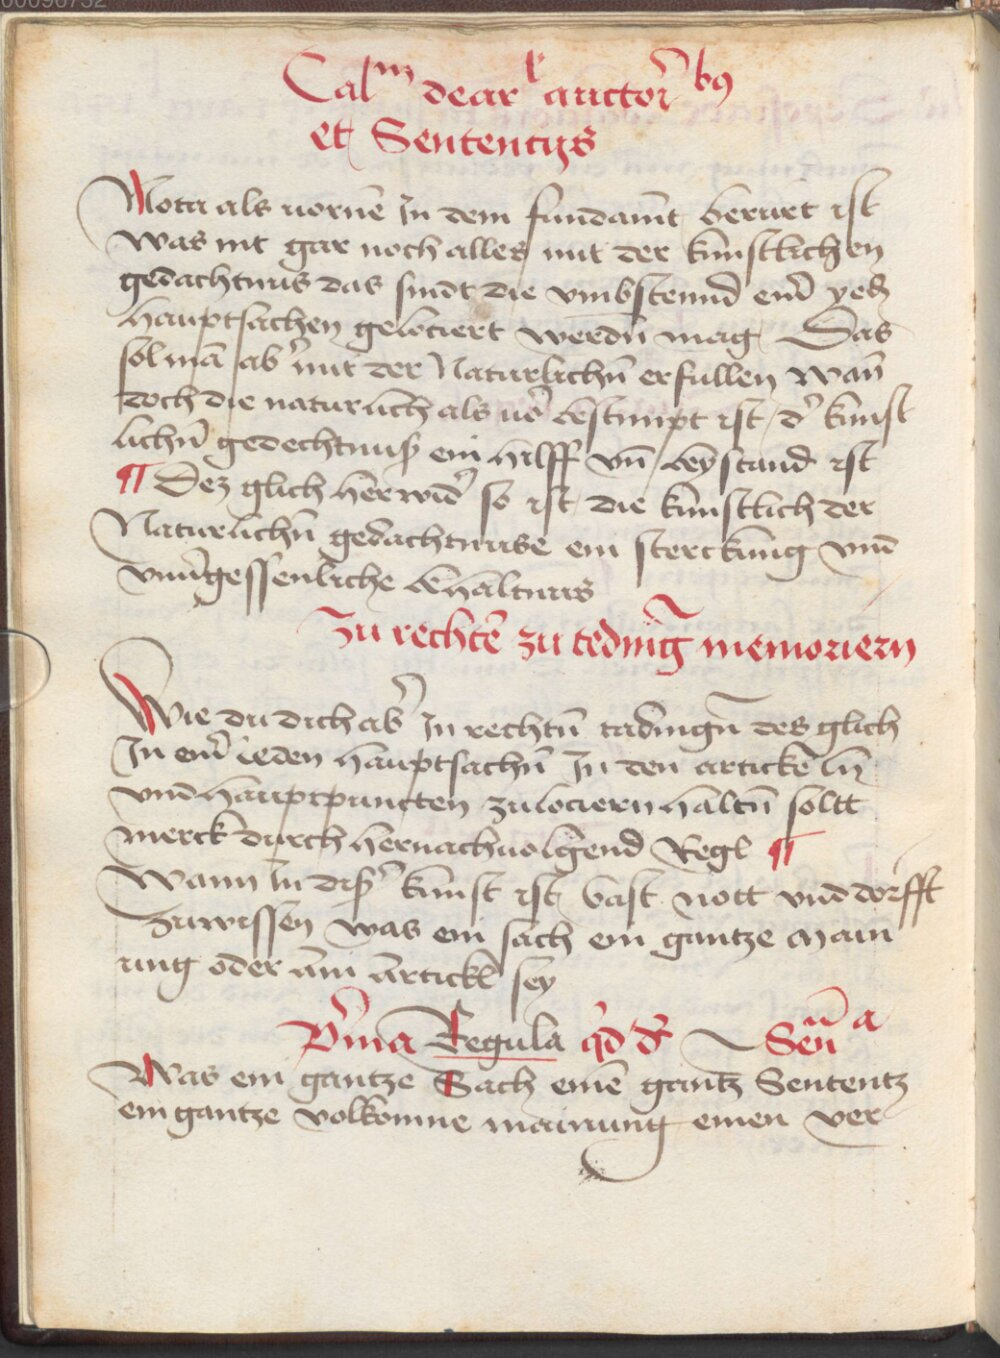 Cal^m dear^l auctor^bꝰ
et Sententijs
Nota als uornē In dem fundamt berürt ist
was nit gar noch alles mit der kunstlichen
gedachtnus das sindt die vmbstennd eīr yed
hauptsachen gelociert werdn̄ mag Das
sol mā ab' mit der Naturlichn̄ erfullen wan̄
doch die naturlich als uō bestimpt ist d' kunst
lichn̄ gedechtnuß ein hilff vn̄ beystand ist
¶ Dez glich herwid' so ist die kunstlich der
Naturlichn̄ gedachtnuse ein sterckung vnd
vnūgessenliche behaltnus
Zu rechtē zu tedinḡ memoriern
Wie du dich ab' In rechtn̄ tadingn̄ des glich
In eīr ieden hauptsachn̄ In den artickelln̄
vnd hauptpuncten zulociern haltn̄ soltt
merck durch hernachuolgend Regl ¶
Wann In diß' kunst ist vast nott vnd dorfft
zuwissen was ein sach ein gantze main
ung oder ain Artickl sey
P'ma Regula qd d' Senn^a
Was ein gantze Sach einē gantz Sententz
ein gantze volkomne mainung einen ver